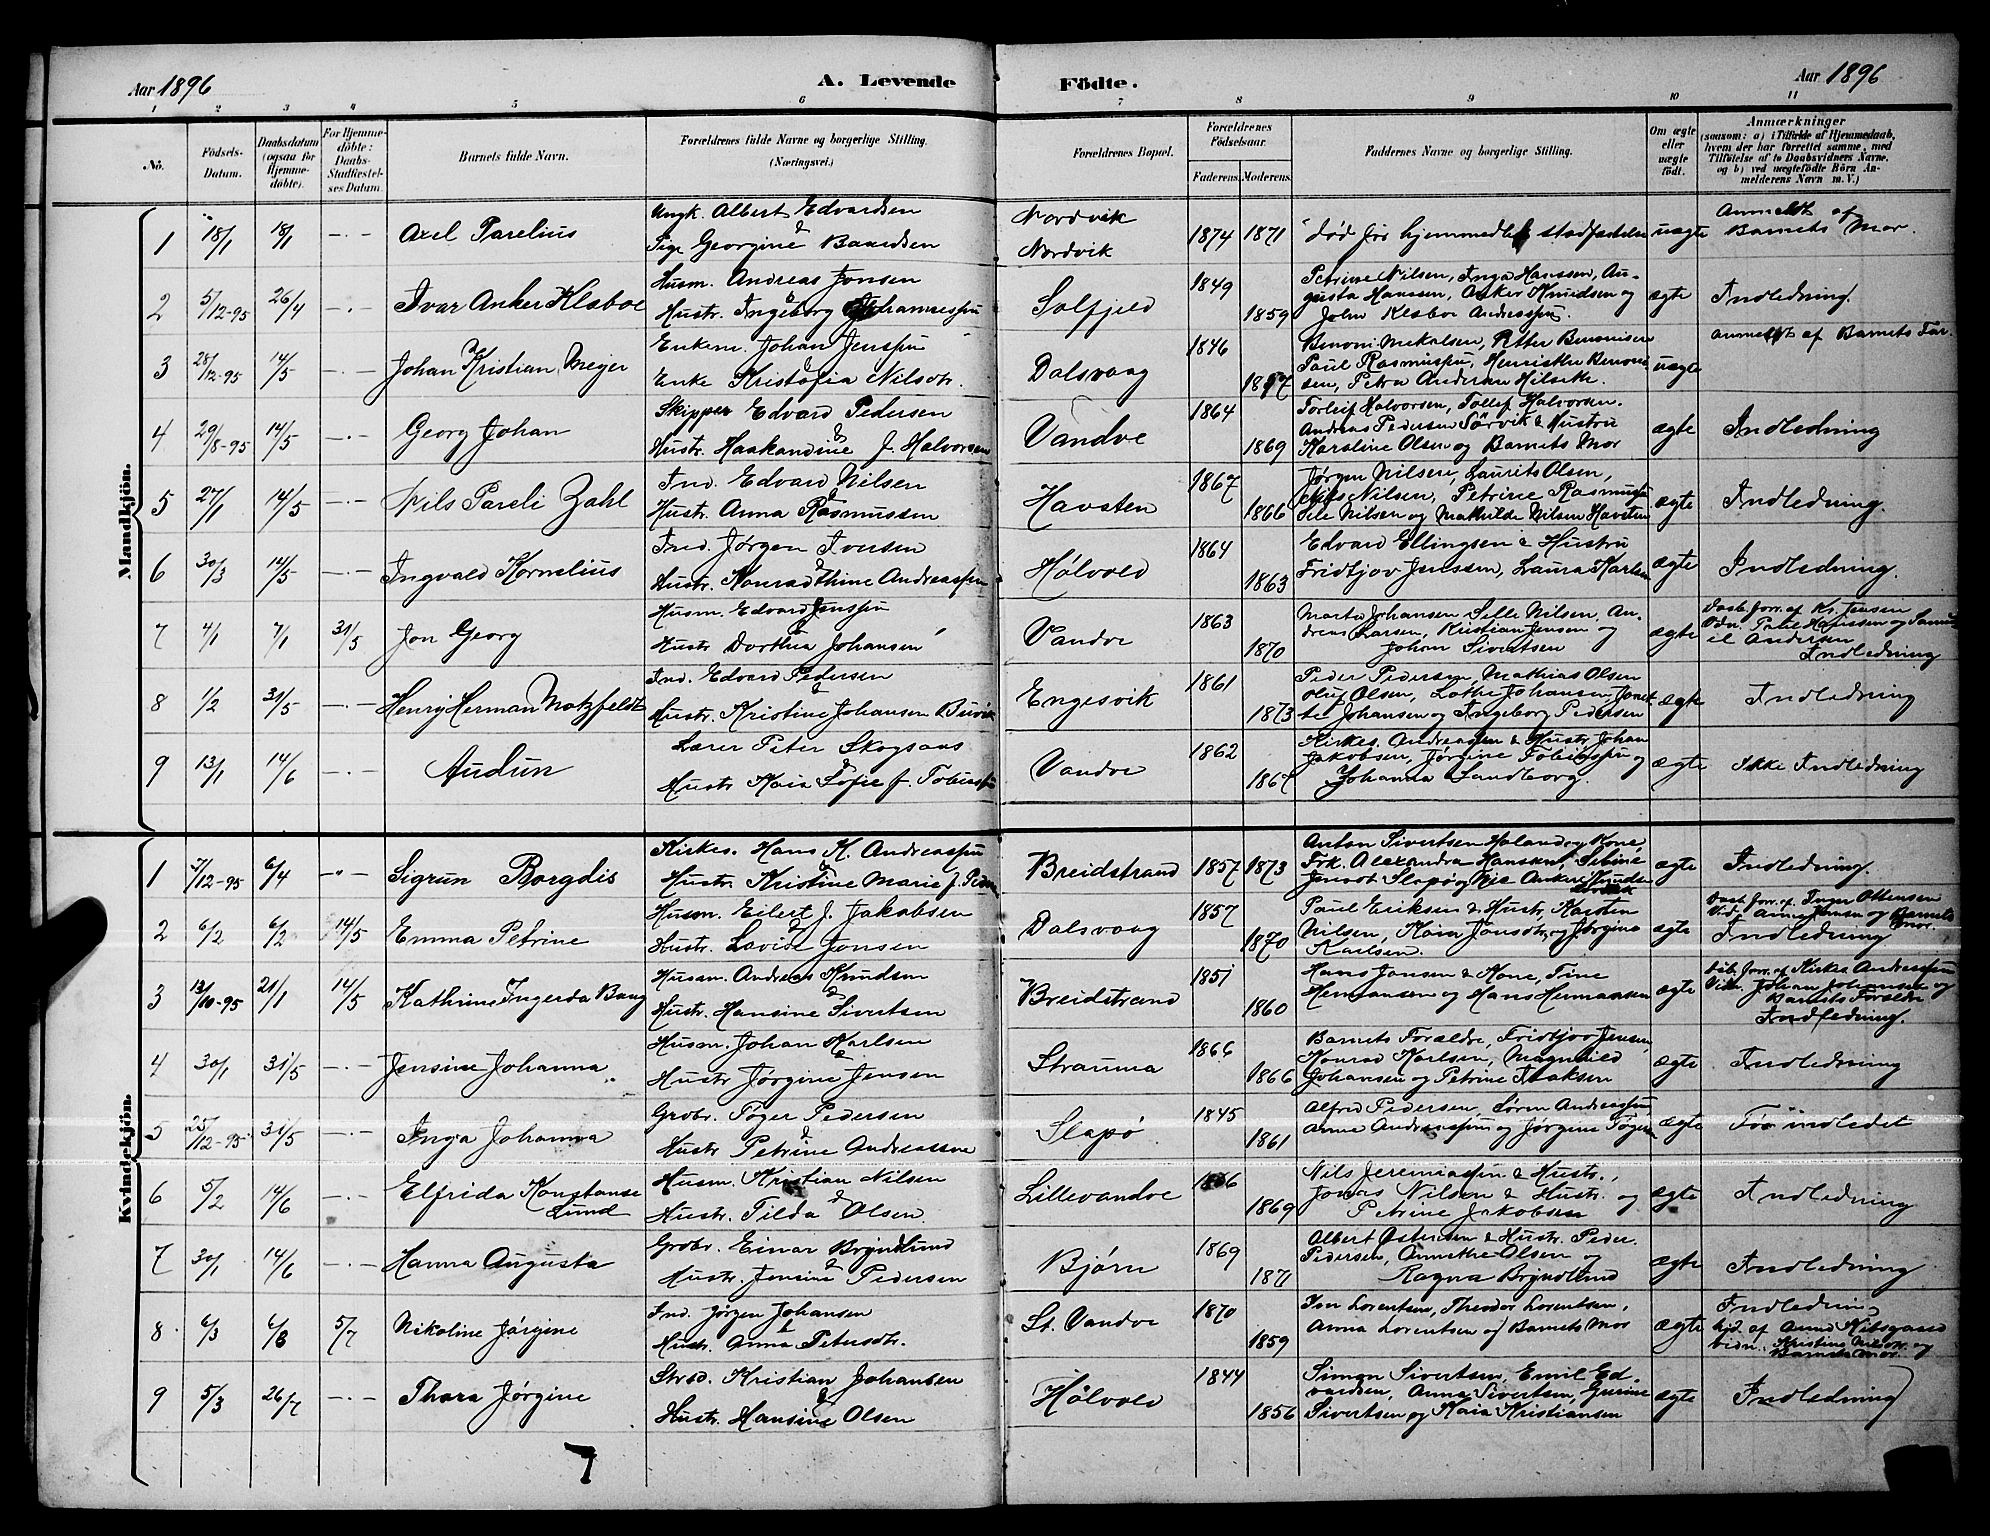 Aar 1896
A. Levende Födte.
Aar 1896
1 2 3 4 5 6 7 8 9 10 11
No.
Födsels-Datum.
Daabsdatum (ogsaa for Hjemmedöbte).
For Hjemmedöbte: Daabs-Stadfæstelses Datum.
Barnets fulde Navn.
Forældrenes fulde Navne og borgerlige Stilling. (Næringsvei.)
Forældrenes Bopæl.
Forældrenes Födselsaar.
Faderens. Moderens.
Faddernes Navne og borgerlige Stilling.
Om ægte eller uægte födt.
Anmærkninger (saasom: a) i Tilfælde af Hjemmedaab, hvem der har forrettet samme, med Tilföielse af to Daabsvidners Navne, og b) ved uægtefödte Börn Anmelderens Navn m. V.)
Mandkjön.
1 18/1 18/1 -.- Axel Parelius
Ungk. Albert Edvardsen
& Pige Georgine Baardsen
Nordvik
Nordvik
1874 1871
død før hjemmed. stadfæstelse uægte
Anmeldt af
Barnets Mor.
2 5/12-95 26/4 -.- Ivar Anker Klæboe
Husm. Andreas Jonsen
& Hustr. Ingeborg Johannesen
Solfjeld 1849 1859
Petrine Nilsen, Inga Hanssen, Au-
gusta Hanssen, Anker Knudsen og
John Klæboe Andreassen. ægte Indledning.
3 28/12-95 14/5 -.- Johan Kristian Mejer
Enkem. Johan Jenssen
Enke Kristofia Nilsdtr.
Dalsvaag 1846
Benoni Mikalsen, Petter Benonisen
Paul Rasmussen, Henrikke Benoni-
sen, Petra Andersen Hilsette. uægte
anmeldt af Barnets Far
4 29/8-95 14/5 -.- Georg Johan
Skipper Edvard Pedersen
& Hustr. Haakandine f. Halvorsen
Vandve 1864 1869
Torleif Halvorsen, Tollef Halvorsen.
Andreas Pedersen Sörvik & Hustru
Karoline Olsen og Barnets Mor ægte Indledning
5 27/1 14/5 -.- Nils Pareli Zahl
Ind. Edvard Nilsen
& Hustr. Anna Rasmussen
Havsten 1867 1866
Jørgen Nilsen, Laurits Olsen,
Nils Nilsen, Petrine Rasmussen
Nilsen og Mathilde Nilsen Havsten ægte Indledning.
6 30/3 14/5 -.- Ingvald Kornelius
Ind. Jørgen Iversen
Hustr. Konradthine Andreassen
Hölvold 1864 1863
Edvard Ellingsen & Hustru
Fridtjov Jenssen, Laura Karlsen ægte Indledning.
7 4/1 7/1 31/5 Jon Georg
Husm. Edvard Jenssen
& Hustr Dorthea Johansen
Vandve 1863 1870
Marta Johansen Sille Nilsen, An-
dreas Larsen, Kristian Jensen og
Johan Sivertsen ægte
Daab forr. af Kr. Jensen
Hanssen og Samu-
el Andersen
Indledning
8 1/2 31/5 -.- Henry Herman Motzfeldt
Ind. Edvard Pedersen
& Hustr. Kristine Johansen Buvik
Engesvik 1861 1873
Peder Pedersen, Mathias Olsen
Oluf Olsen, Lothe Johansen, Janet-
te Johansen og Ingeborg Pedersen ægte Indledning
9 13/1 14/6 -.- Audun
Lærer Peter Skogsaas
& Hustr Kaia Sofie f. Tobiassen
Vandve 1862 1867
Kirkes. Andreassen & Hustr Johan
Jakobsen, Jørgine Tobiassen og
Johanna Sandborg. ægte Ikke Indledning
Kvindekjön.
1 7/12-95 6/4 -"- Sigrun Borgdis
Kirkes. Hans K. Andreassen
& Hustr. Kristine Marie f.
Breidstrand 1857 1873
Anton Sivertsen Haland og Kone,
Frk. Alexandra Hansken, Petrine
Slapö og Anker Knudsen ægte Indledning.
2 6/2 6/2 14/5 Emma Petrine
Husm. Eilert J. Jakobsen
& Hustr. Lovise Jonsen
Dalsvaag 1857 1870
Paul Eriksen & Hustr, Karsten
Nilsen, Kaia Jonsdtr. og Jørgine
Karlsen. ægte
Daab forr. af Inger Ottensen
Vid. Anne Jensen og Barnets mor.
Indledning
3 13/10-95 21/1 14/5 Kathrine Ingerda Bang
Husm. Andreas Knudsen
& Hustr. Hansine Sivertsen
Breidstrand 1851 1860
Hans Jonsen & Kone, Tine
Hermansen og Hans Hermansen ægte
Daab forr. af Kirkes Andreassen
Vidn. Johan Johansen og
Barnets Forældre
Indledning.
4 30/1 31/5 -.- Jensine Johanna
Husm. Johan Karlsen
& Hustr Jørgine Jensen
Strauma 1866 1866
Barnets Forældre, Fridtjov Jensen,
Konrad Karlsen, Magnhild
Johansen og Petrine Isaksen ægte Indledning
5 25/12-95 31/5 -.- Inga Johanna
Grdbr. Töger Pedersen
& Hustr Petrine Andreassen
Slapö 1845 1861
Alfred Pedersen, Sören Andreassen
Anne Andreassen og Jørgine Tögersen ægte Før indledet
6 5/2 14/6 -.- Elfrida Konstanse Lund
Husm. Kristian Nilsen
& Hustr. Tilda Olsen
Lillevandve 1869
Nils Jeremiassen & Hustr.,
Jonas Nilsen & Hustr. og
Petrine Jakobsen ægte Indledning
7 30/1 14/6 -.- Hanna Augusta
Grdbr. Einar Bryndlund
& Hustr. Jensine Pedersen
Bjørn 1869 1871
Albert Østensen & Hustr. Peder
Pedersen, Annethe Olsen og
Ragna Bryndlund ægte Indledning
8 6/3 6/3 5/7 Nikoline Jørgine
Ind. Jørgen Johansen
& Hustr. Anna Petersdtr.
St. Vandve 1870 1859
Lorentsen, Theodor Lorentsen,
Anna Lorentsen og Barnets Mor ægte
Indledning
hjd. af Anna Nilsgaard
vidn. Kristine Nilsdtr. og
Barnets Mor.
9 5/3 26/7 -.- Thora Jørgine
Strsd. Kristian Johansen
& Hustr. Hansine Olsen
Hölvold 1844 1856
Simon Sivertsen, Emil Ed-
vardsen, Anna Sivertsen, Gurine
Sivertsen og Kaia Kristiansen ægte Indledning
7